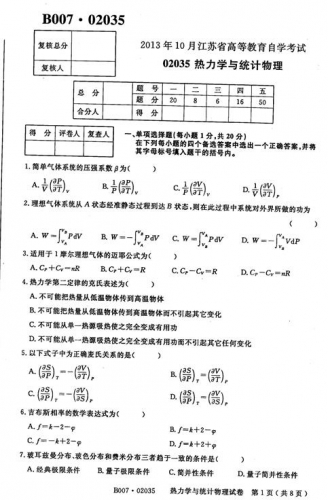 B007·02035
复核总分
复核人
2013年10月江苏省高等教育自学考试
02035 热力学与统计物理
总分 题号 一 二 三 四 五
题分 20 8 6 16 50
合分人 得分
得分 评卷人 复查人
一、单项选择题(每小题1分,共20分)
在下列每小题的四个备选答案中选出一个正确答案,并将
其字母标号填入题干的括号内。
1.简单气体系统的压强系数β为( )
2.理想气体系统从A状态经准静态过程到达B状态,则在此过程中系统对外界所做的功为
( )
3.适用于1摩尔理想气体的迈耶公式为( )
A. Cₚ+Cᵥ=nR B. Cₚ+Cᵥ=R C. Cₚ-Cᵥ=R D. Cₚ-Cᵥ=nR
4.热力学第二定律的克氏表述为( )
A.不可能把热量从低温物体传到高温物体
B.不可能把热量从低温物体传到高温物体而不引起其它变化
C.不可能从单一热源吸热使之完全变成有用功
D.不可能从单一热源吸热使之完全变成有用功而不引起其它任何变化
5.以下式子中为正确麦氏关系的是( )
6.吉布斯相率的数学表达式为( )
A. f=k-2-φ B. f=k+2-φ
C. f=-k+2+φ D. f=k+2+φ
7.玻耳兹曼分布、玻色分布和费米分布三者趋于一致的条件是( )
A.经典极限条件 B.量子极限条件 C.简并性条件 D.量子简并性条件
B007·02035 热力学与统计物理试卷 第1页(共8页)